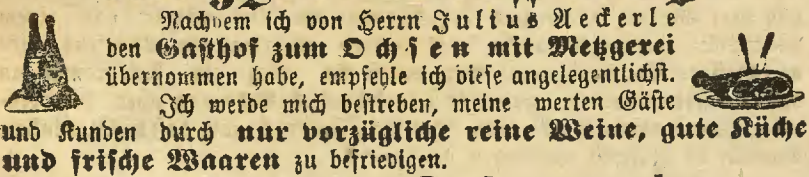 Nachdem ich von Herrn Julius Aeckerle
den Gasthof zum Ochsen mit Metzgerei
übernommen habe, empfehle ich diese angelegentlichst.
Ich werde mich bestreben, meine werten Gäste
und Kunden durch nur vorzügliche reine Weine, gute Küche
und frische Waaren zu befriedigen.